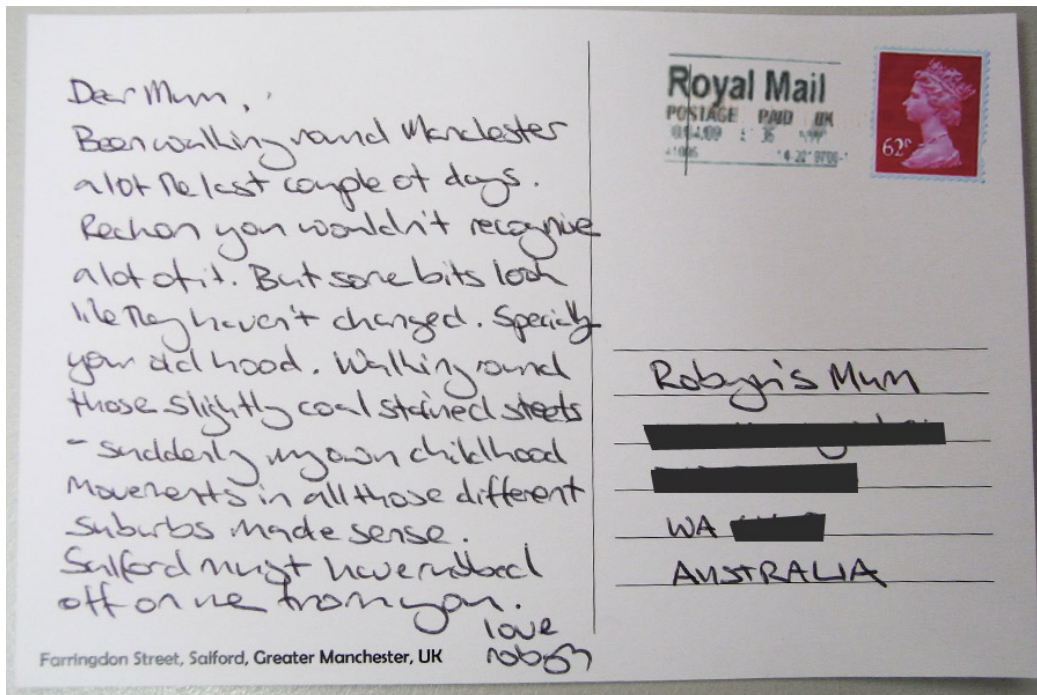 Dear Mum,
Been walking round Manchester
a lot the last couple of days.
Reckon you wouldn't recognise
a lot of it. But some bits look
like they haven't changed. Specially
your old hood. Walking round
those slightly coal stained streets
- suddenly my own childhood
movements in all those different
suburbs made sense.
Salford must have rubbed
off on me from you.
love
robyn
Farringdon Street, Salford, Greater Manchester, UK
Royal Mail
POSTAGE PAID UK
62p
Robyn's Mum
WA
AUSTRALIA